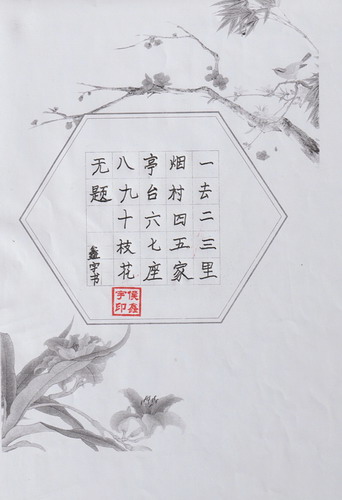 一去二三里
烟村四五家
亭台六七座
八九十枝花
无题
鑫宇书
侯鑫宇印